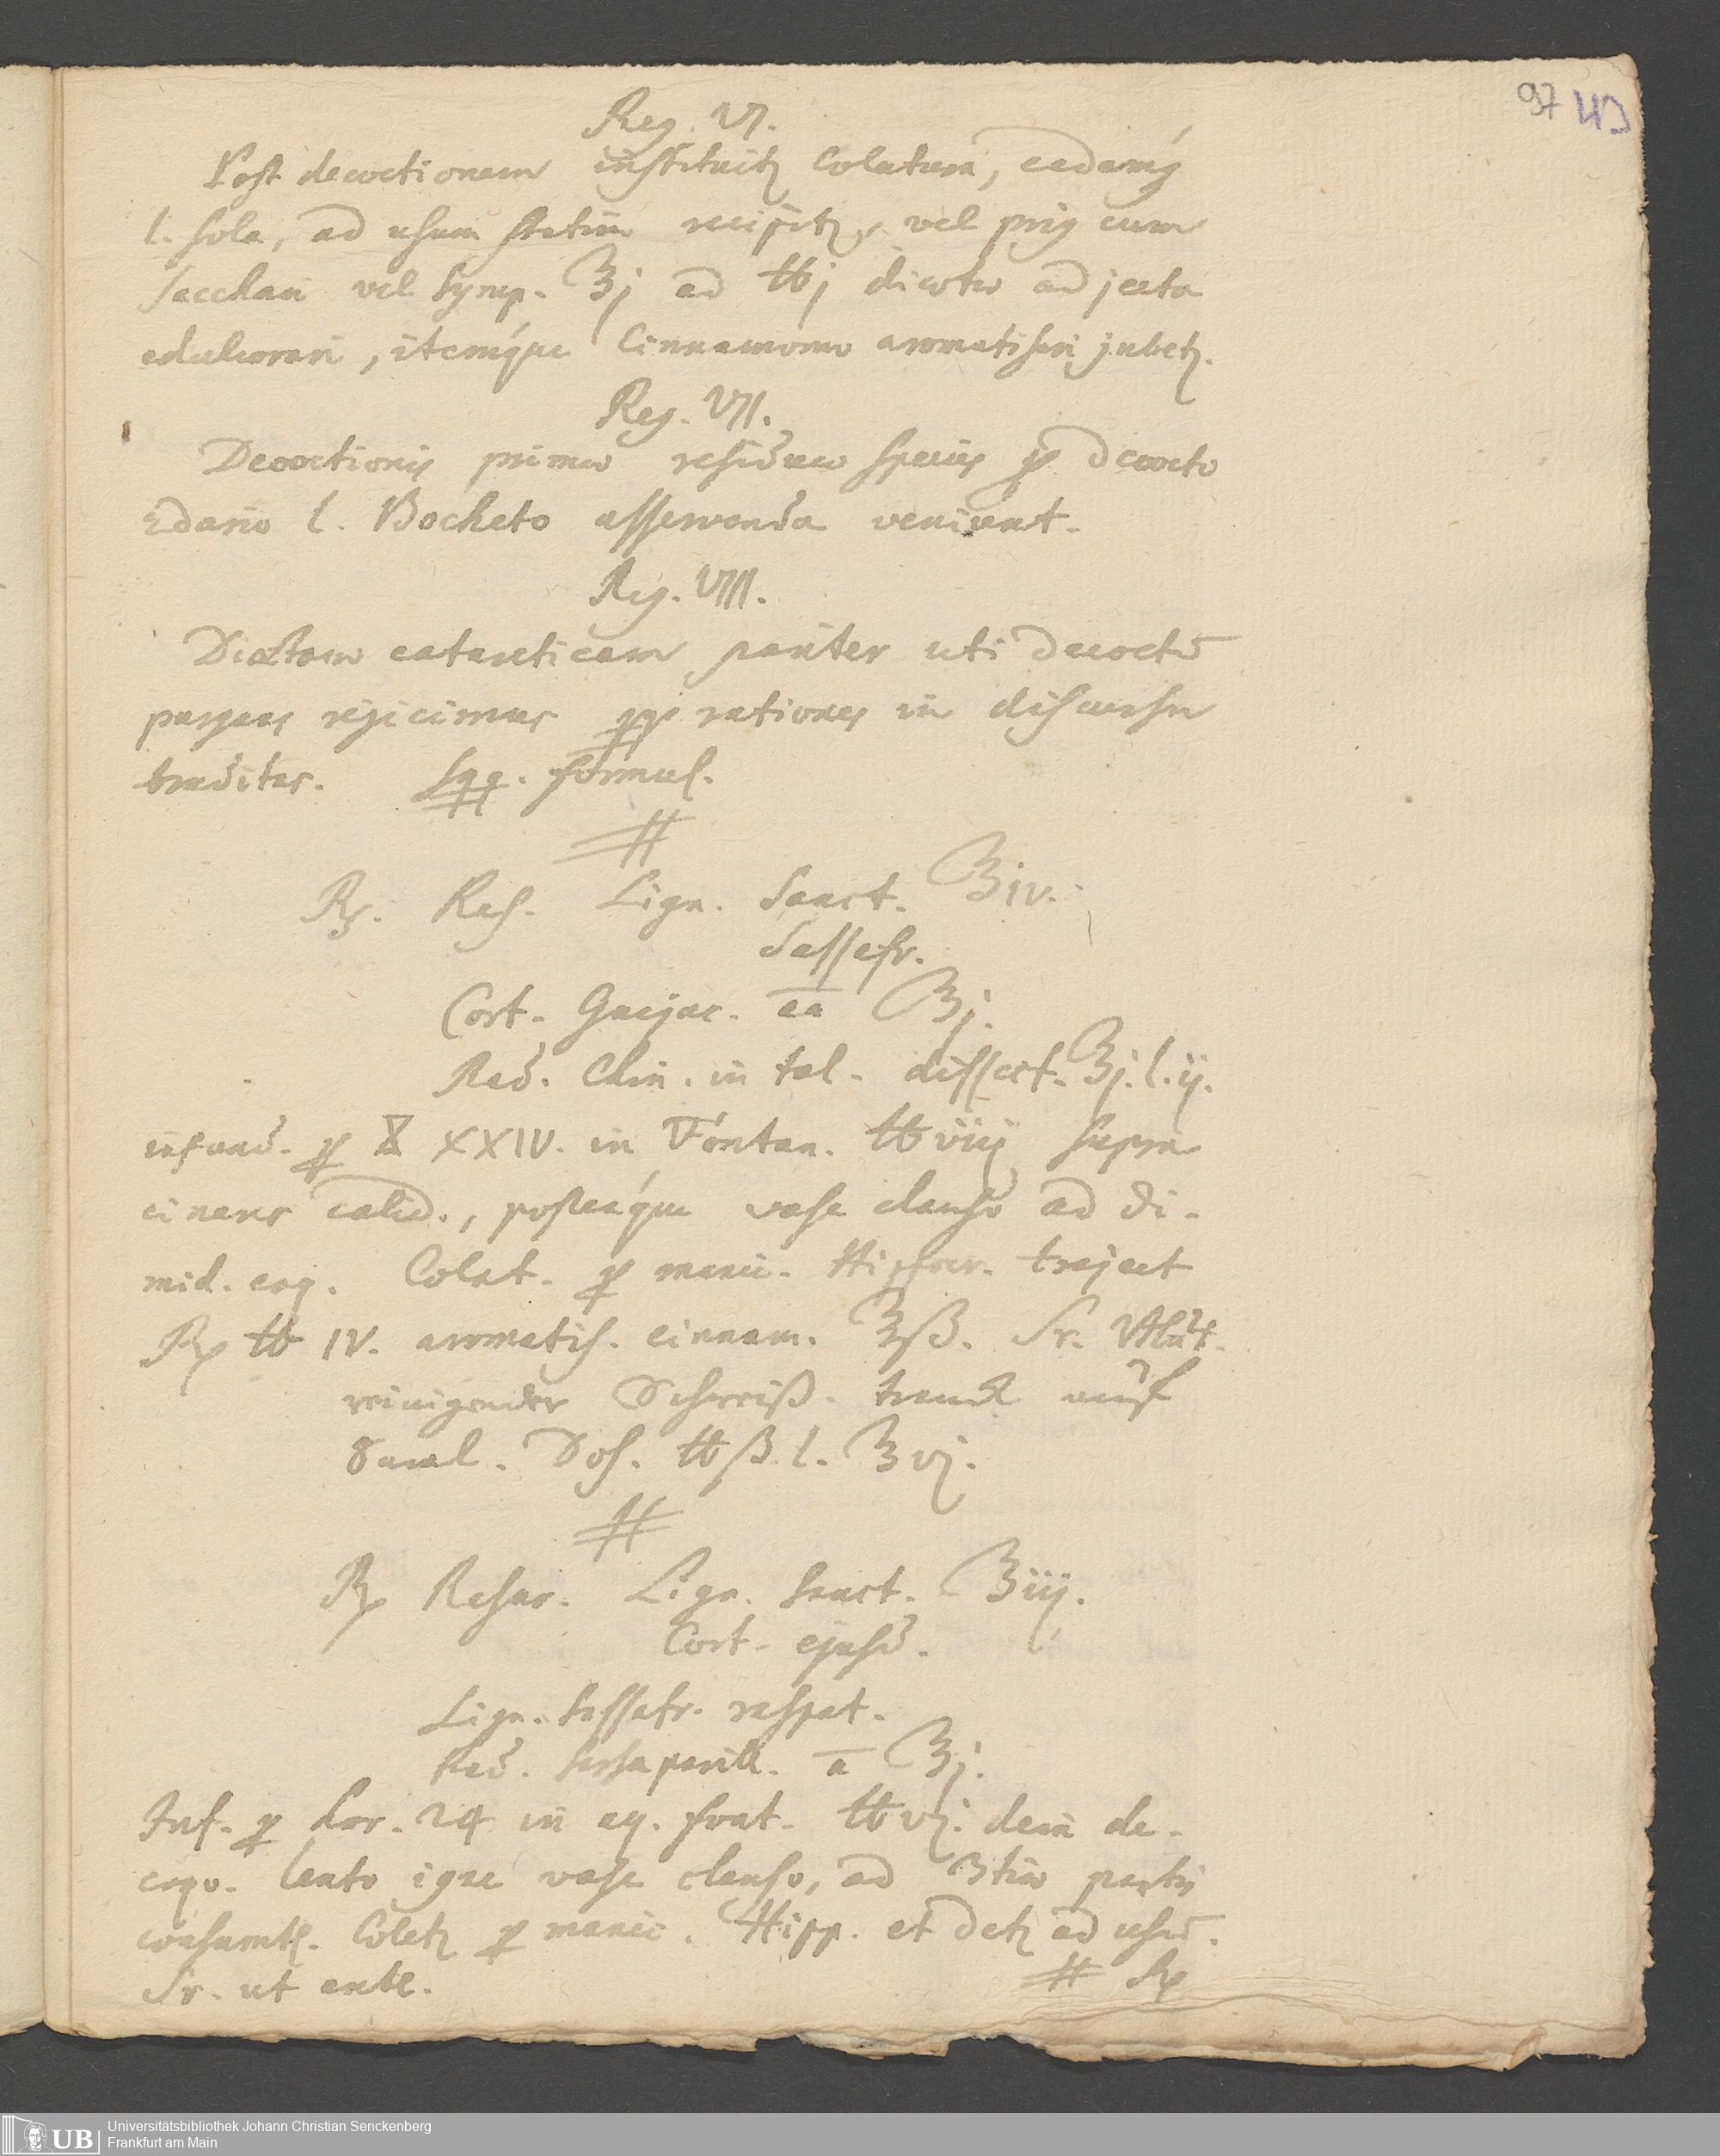 97 43
Reg. VI.
Post decoctionem instituitꝫ Colatura, eademꝗ́
l. sola, ad usum statim recipitꝫ, vel prig cum
Sacchari vel Syrup. ℥j ad ℔j dicotw adjecta
edulcorari, itemq́ue Cinnamomo aromatisari jubetꝫ.
Reg. VII.
Decoctionis primæ residuæ species ꝓ decocto
2dario l. Bocheto asservanda veniunt.
Reg. VIII.
Diætam catarcticam pariter uti decoctū
purgans rejicimus ꝓꝑ rationes in discursu
traditas. Sqq. formul.
#
℞. Ras. Lign. Sanct. ℥iv.
Sassafr.
Cort. Guajac. āā ℥j.
Rad. Chin. in tal. dissect. ℥j. l. ij.
infund. ꝑ XXIV. in Fontan. ℔viij supra
cineres calid., posteaq́ue vase clauso ad di-
mid. coq. Colat. ꝑ manic. Hippocr. traject
℞ ℔ IV. aromatis. cinnam. ℥ß. Sr.
reinigender Schweiß-tranck auf
8 mal. Dos. ℔ß l. ℥vj.
#
℞ Rasur. Lign. Sanct. ℥iij.
Cort. ejusd.
Lign. Sassafr. raspat.
Rad. Sarsaparill. ā ℥j.
Inf. ꝑ hor. 24 in aq. font. ℔vj. dein de-
coqu. lento igne vase clauso, ad 3tiæ partis
consumtꝭ. Coletꝫ ꝑ manic. Hipp. et detꝫ ad usū.
Sr. ut ante. # ℞
UB Universitätsbibliothek Johann Christian Senckenberg
Frankfurt am Main